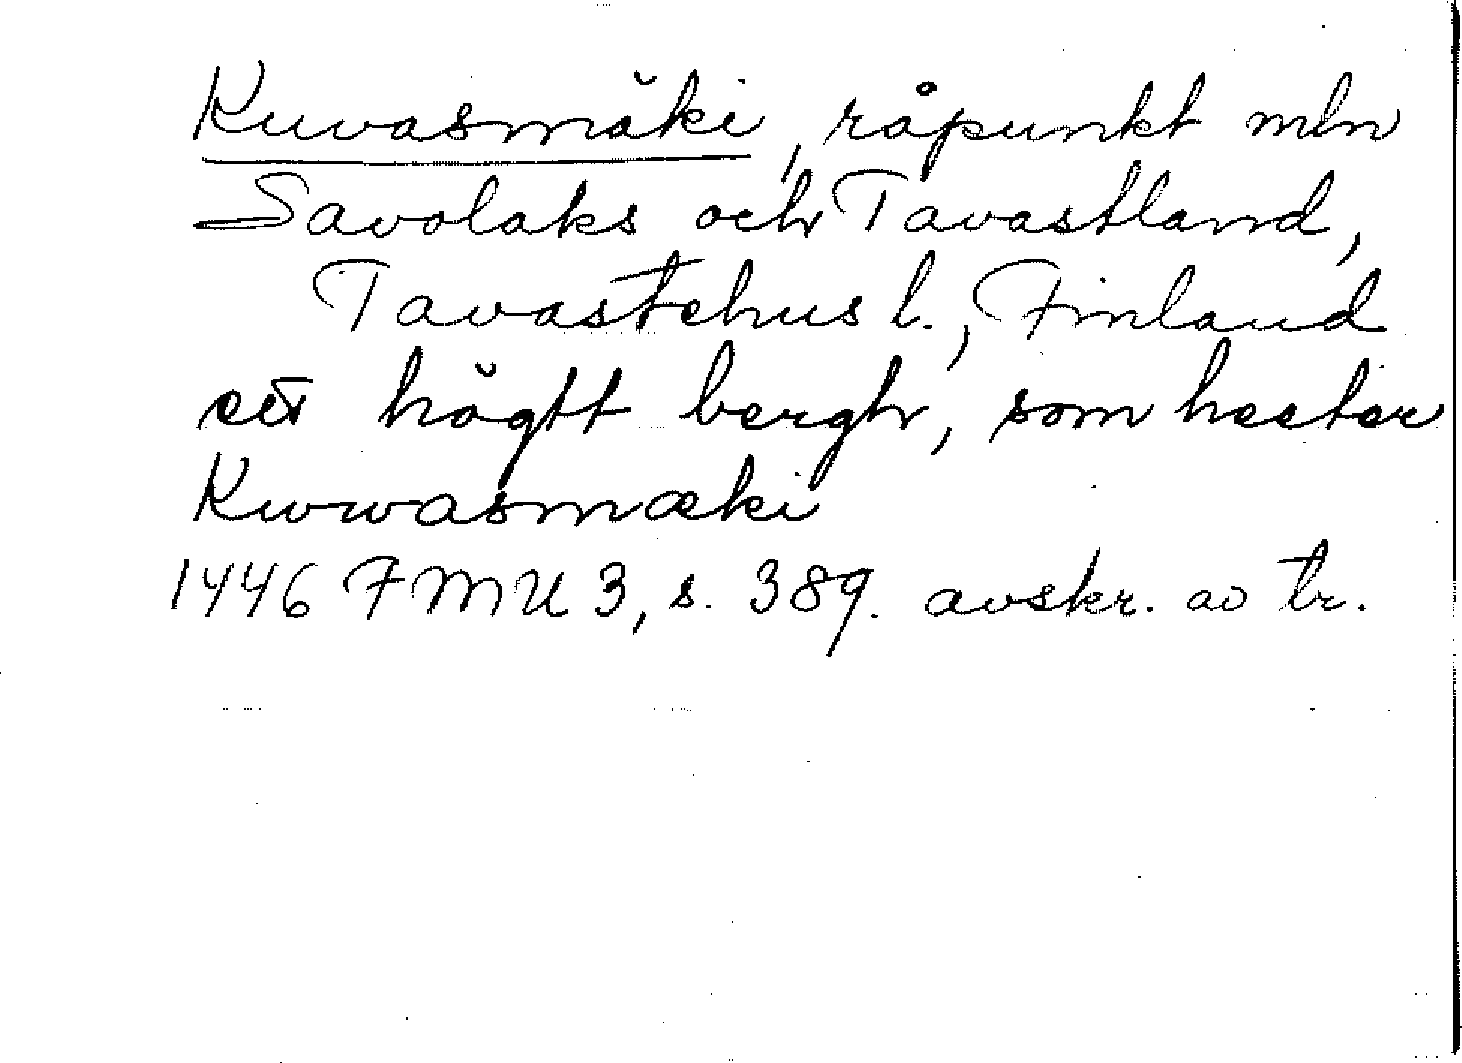 Kuvasmäki, råpunkt mln
Savolaks och Tavastland,
Tavastehus l., Finland
ett högtt bergh, som heeter
Kuvvasmæki
1446 FMU 3, s. 389. avskr. av tr.